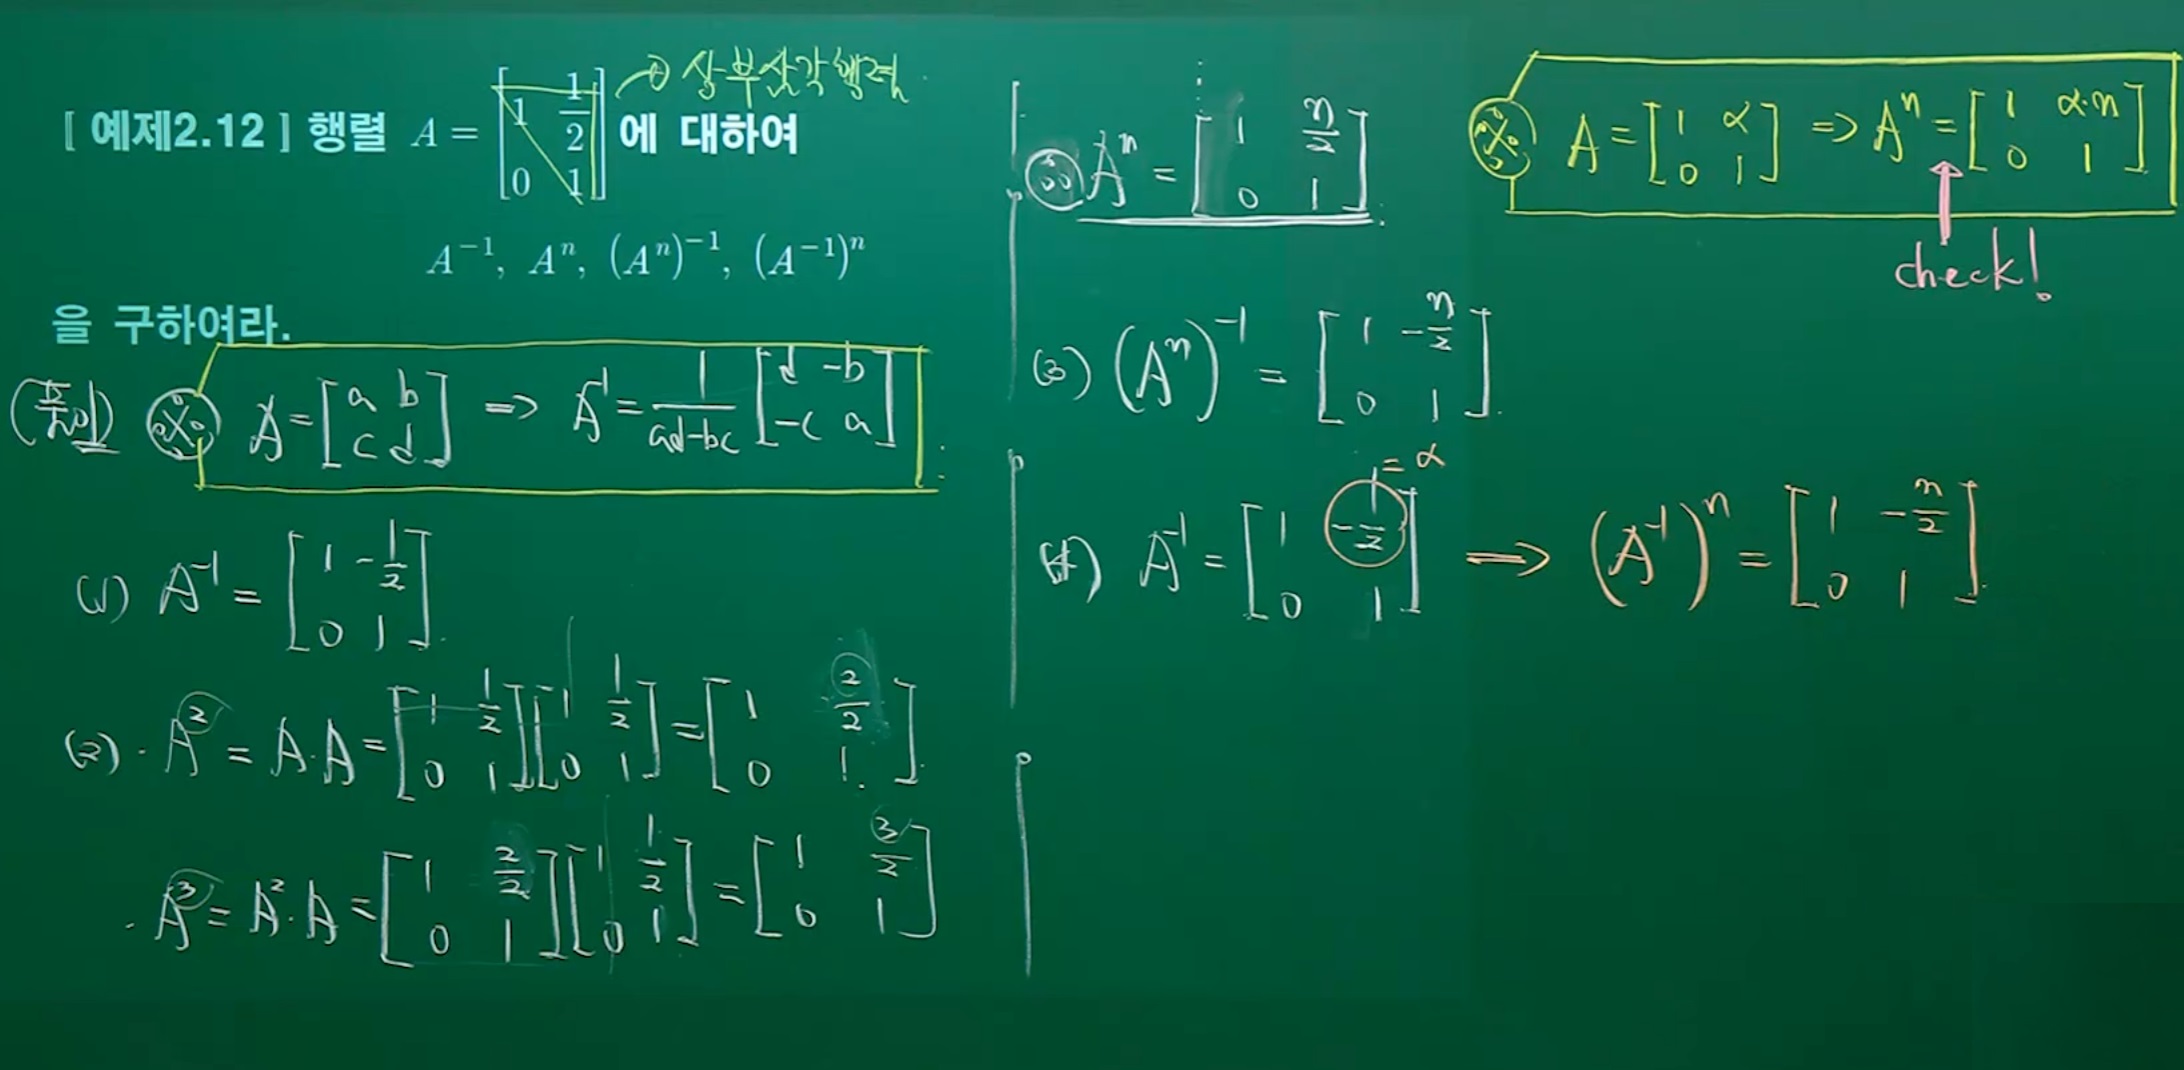 [ 예제2.12 ] 행렬 A = [1 1/2; 0 1] 에 대하여
→ 상부삼각행렬
A⁻¹, Aⁿ, (Aⁿ)⁻¹, (A⁻¹)ⁿ
을 구하여라.
(풀이) ※ A = [a b; c d] ⇒ A⁻¹ = 1/(ad-bc) [d -b; -c a]
(1) A⁻¹ = [1 -1/2; 0 1].
(2) · A² = A·A = [1 1/2; 0 1][1 1/2; 0 1] = [1 2/2; 0 1].
· A³ = A²·A = [1 2/2; 0 1][1 1/2; 0 1] = [1 3/2; 0 1]
⋮
∴ Aⁿ = [1 n/2; 0 1].
(3) (Aⁿ)⁻¹ = [1 -n/2; 0 1].
(4) A⁻¹ = [1 -1/2; 0 1] ⇒ (A⁻¹)ⁿ = [1 -n/2; 0 1].
= α
※ A = [1 α; 0 1] ⇒ Aⁿ = [1 α·n; 0 1]
check!